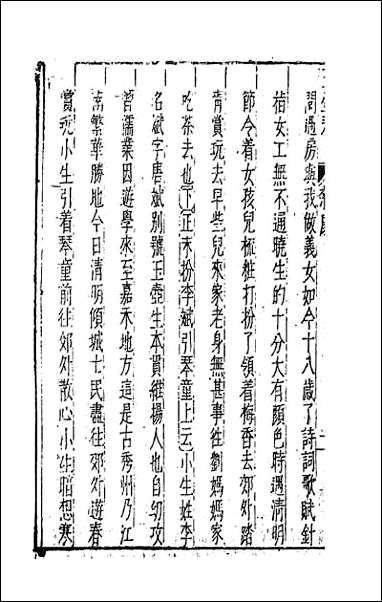 間過房與我做義女如今十八歲了詩詞歌賦針
指女工無不通曉生的十分大有顏色時遇清明
節令着女孩兒梳粧打扮了領着梅香去郊外踏
青賞玩去早些兒來家老身無甚事往劉媽媽家
吃茶去也下正末扮李斌引琴童上云小生姓李
名斌字唐斌別號玉壺生本貫維揚人也自幼攻
習儒業因遊學來至嘉禾地方這是古秀州乃江
南繁華勝地今日清明傾城士民盡往郊外遊春
賞玩小生引着琴童前往郊外散心小生暗想寒